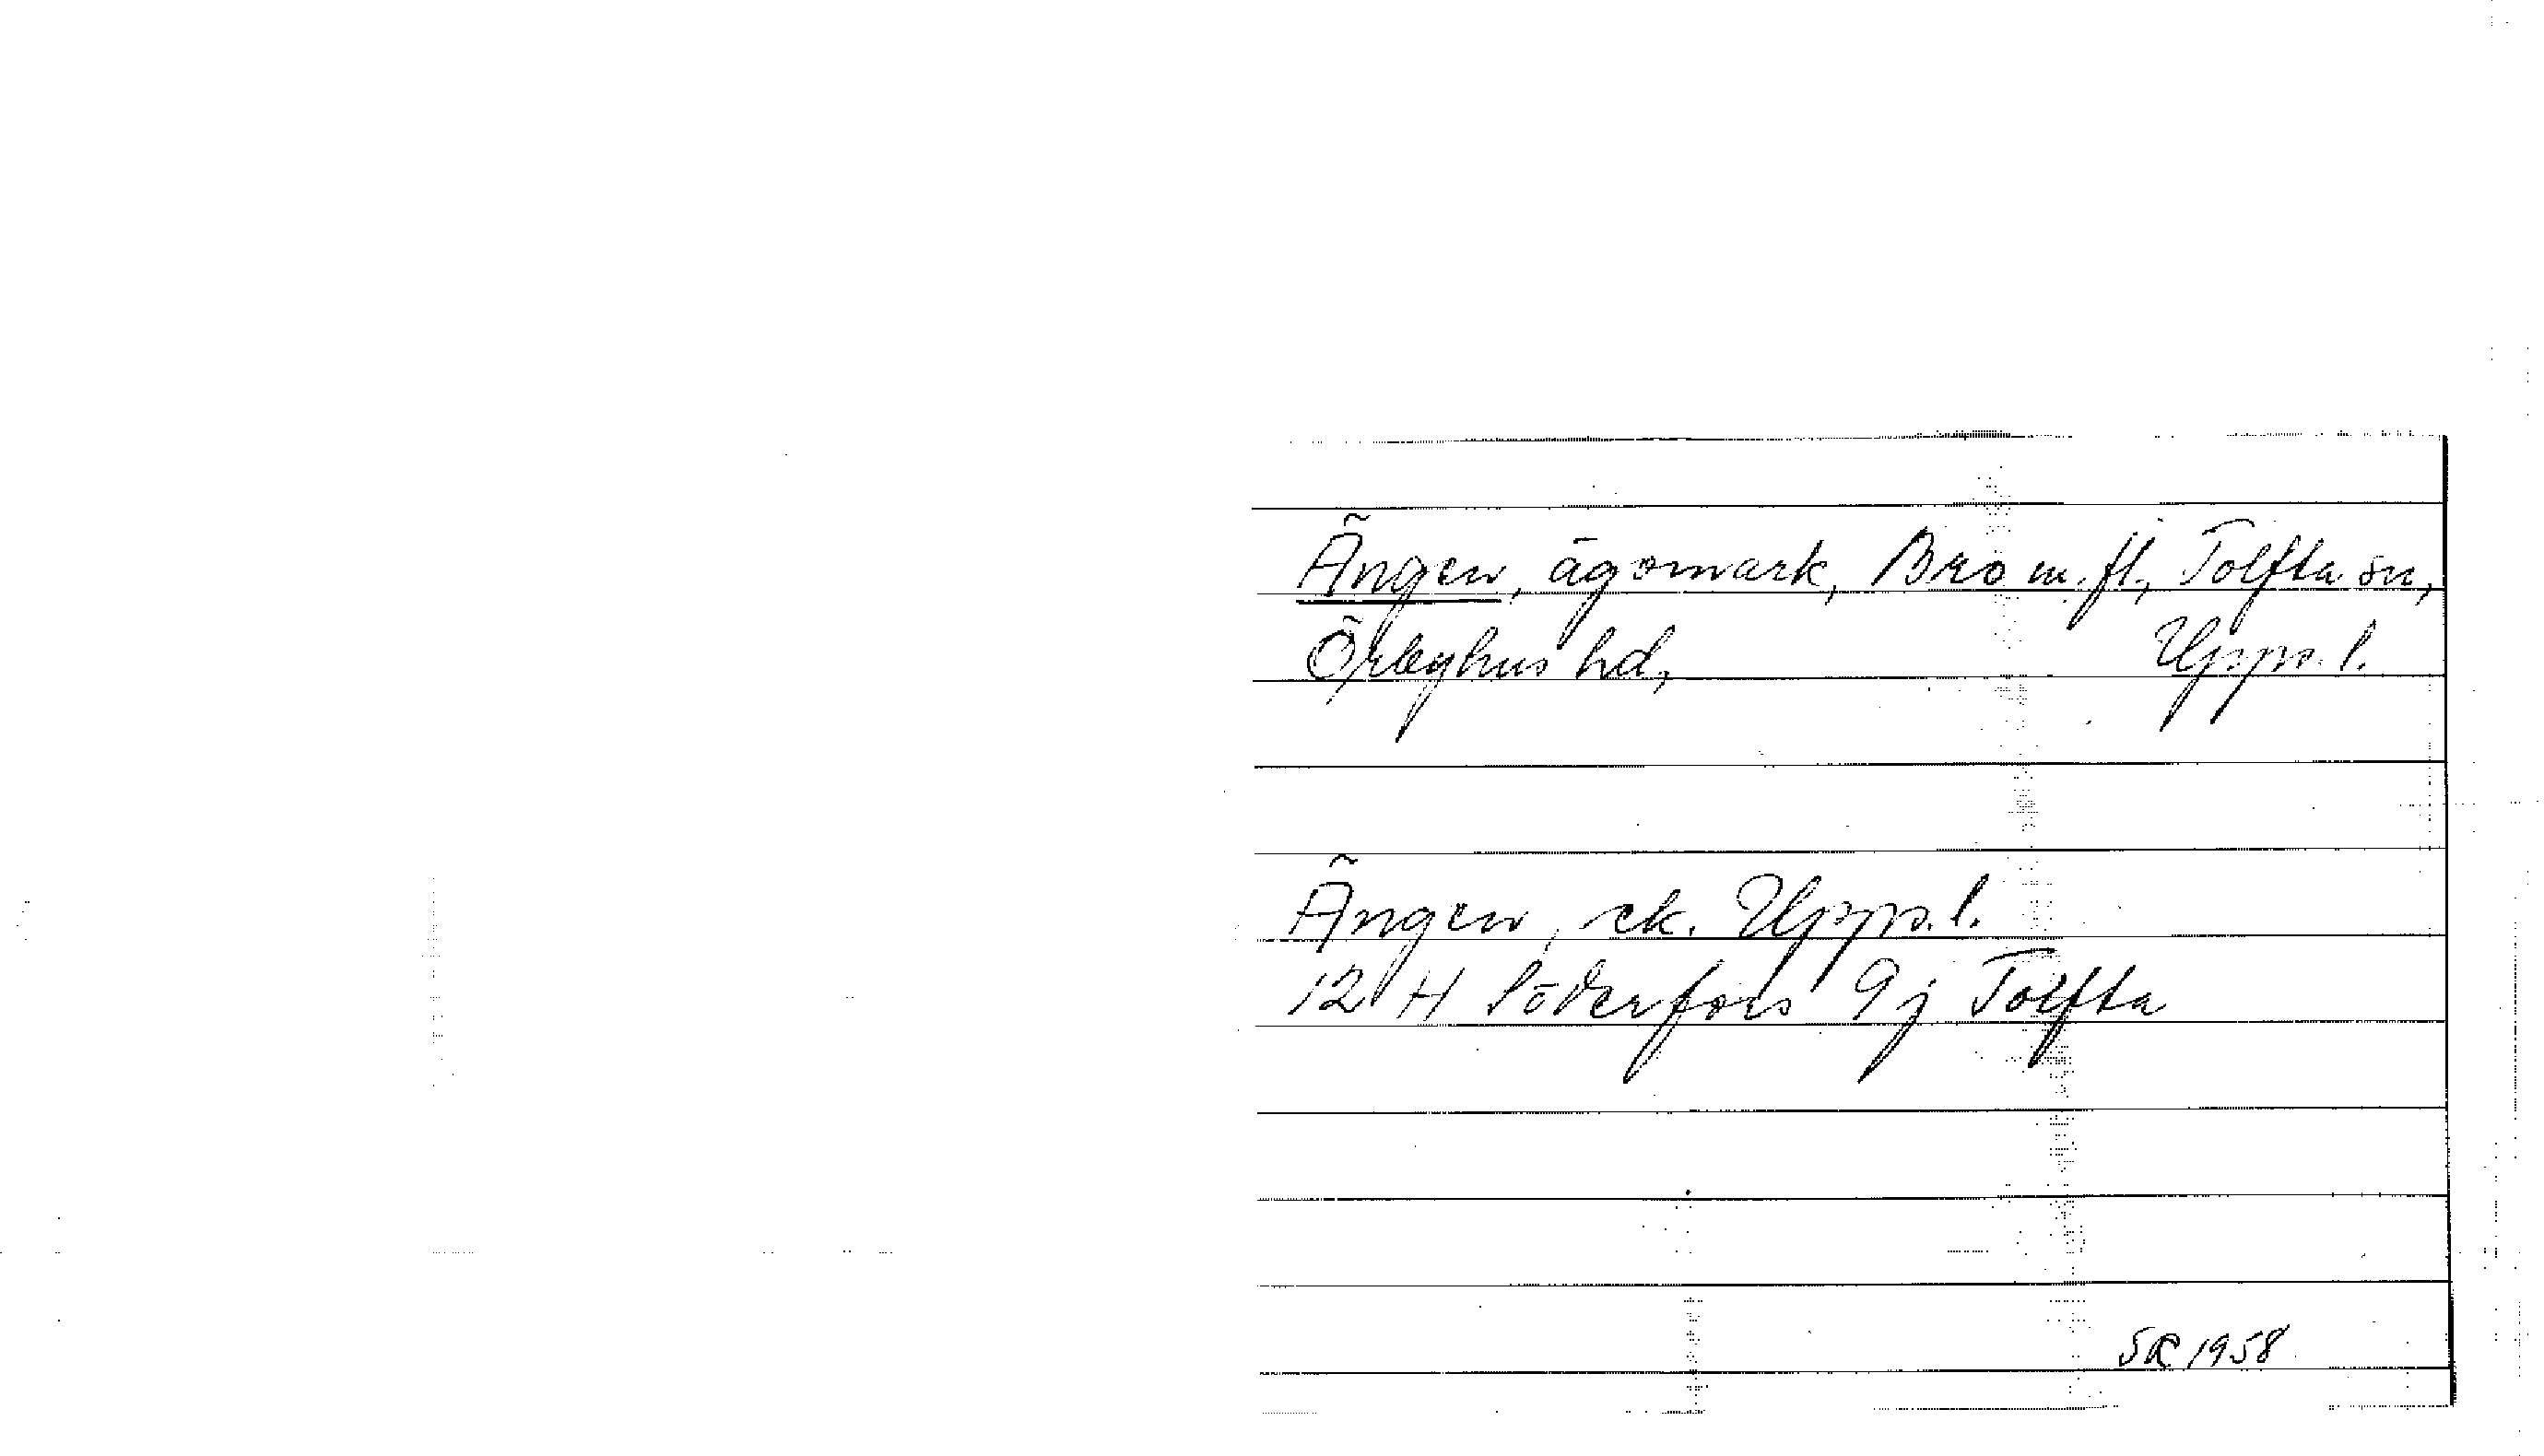 Ängen, ägomark, Bro m.fl., Tolfta sn,
Örbyhus hd, Upps. l.
Ängen, ek. Upps. l.
12 H Söderfors 9j Tolfta
SR 1958